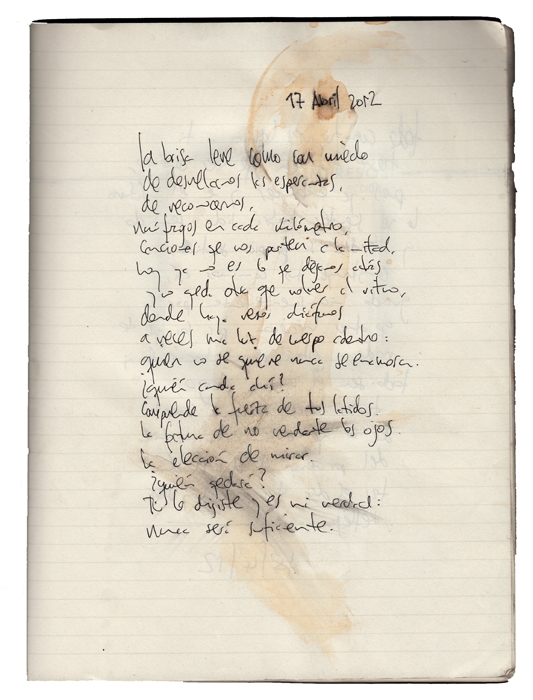 17 Abril 2012
la brisa leve como con miedo
de desvelarnos las esperanzas,
de reconocernos,
náufragos en cada kilómetro,
canciones se nos parten a la mitad,
hoy ya no es lo que dejamos atrás
y no queda otra que volver al ritmo,
donde haya versos diáfanos
a veces una luz de cuerpo adentro:
quien no se quiere nunca se enamora.
¿quién anda ahí?
Comprende la fuerza de tus latidos.
la fortuna de no vendarte los ojos.
la elección de mirar.
¿quién quedará?
Tú lo dijiste y es mi verdad:
nunca será suficiente.